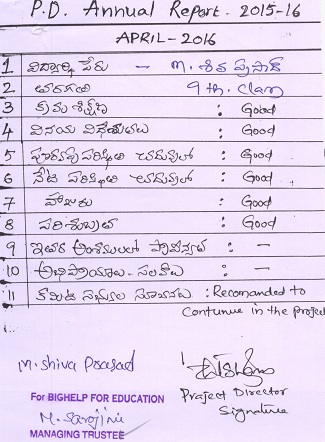 P.D. Annual Report - 2015-16
APRIL - 2016
1 విద్యార్థి పేరు - M. శివ ప్రసాద్
2 తరగతి 9th. Class
3 క్రమశిక్షణ : Good
4 వినయ విధేయతలు : Good
5 పూర్వపు పరిస్థితి చదువులో : Good
6 నేటి పరిస్థితి చదువులో : Good
7 హాజరు : Good
8 పరిశుభ్రత : Good
9 ఇతర అంశములలో ప్రావీణ్యత : -
10 అభిప్రాయాలు - సలహాలు : -
11 కమిటి సభ్యుల సూచనలు : Recomanded to
Contunue in the project
M. Shiva Prasad
For BIGHELP FOR EDUCATION
M. Sarojini
MANAGING TRUSTEE
Project Director
Signature